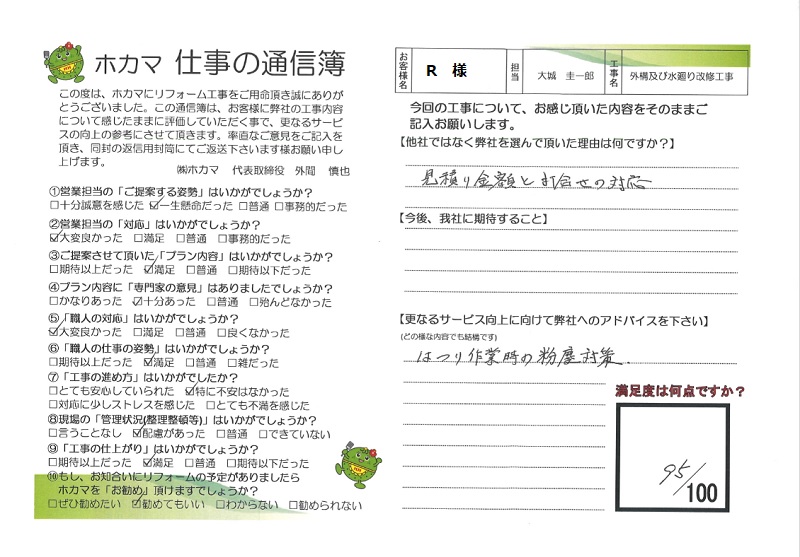 ホカマ 仕事の通信簿
この度は、ホカマにリフォーム工事をご用命頂き誠にありが
とうございました。この通信簿は、お客様に弊社の工事内容
について感じたままに評価していただく事で、更なるサービ
スの向上の参考にさせて頂きます。率直なご意見をご記入を
頂き、同封の返信用封筒にてご返送下さいます様お願い申し
上げます。
㈱ホカマ 代表取締役 外間 慎也
①営業担当の「ご提案する姿勢」はいかがでしょうか？
□十分誠意を感じた ☑一生懸命だった □普通 □事務的だった
②営業担当の「対応」はいかがでしょうか？
☑大変良かった □満足 □普通 □事務的だった
③ご提案させて頂いた「プラン内容」はいかがでしょうか？
□期待以上だった ☑満足 □普通 □期待以下だった
④プラン内容に「専門家の意見」はありましたでしょうか？
□かなりあった ☑十分あった □普通 □殆んどなかった
⑤「職人の対応」はいかがでしょうか？
☑大変良かった □満足 □普通 □良くなかった
⑥「職人の仕事の姿勢」はいかがでしょうか？
□期待以上だった ☑満足 □普通 □雑だった
⑦「工事の進め方」はいかがでしたか？
□とても安心していられた ☑特に不安はなかった
□対応に少しストレスを感じた □とても不満を感じた
⑧現場の「管理状況(整理整頓等)」はいかがでしょうか？
□言うことなし ☑配慮があった □普通 □できていない
⑨「工事の仕上がり」はいかがでしょうか？
□期待以上だった ☑満足 □普通 □期待以下だった
⑩もし、お知合いにリフォームの予定がありましたら
ホカマを「お勧め」頂けますでしょうか？
□ぜひ勧めたい ☑勧めてもいい □わからない □勧められない
お客様名 R 様 担当 大城 圭一郎 工事名 外構及び水廻り改修工事
今回の工事について、お感じ頂いた内容をそのままご
記入お願いします。
【他社ではなく弊社を選んで頂いた理由は何ですか？】
見積り金額と打合せの対応
【今後、我社に期待すること】
【更なるサービス向上に向けて弊社へのアドバイスを下さい】
(どの様な内容でも結構です)
はつり作業時の粉塵対策.
満足度は何点ですか？
95/100